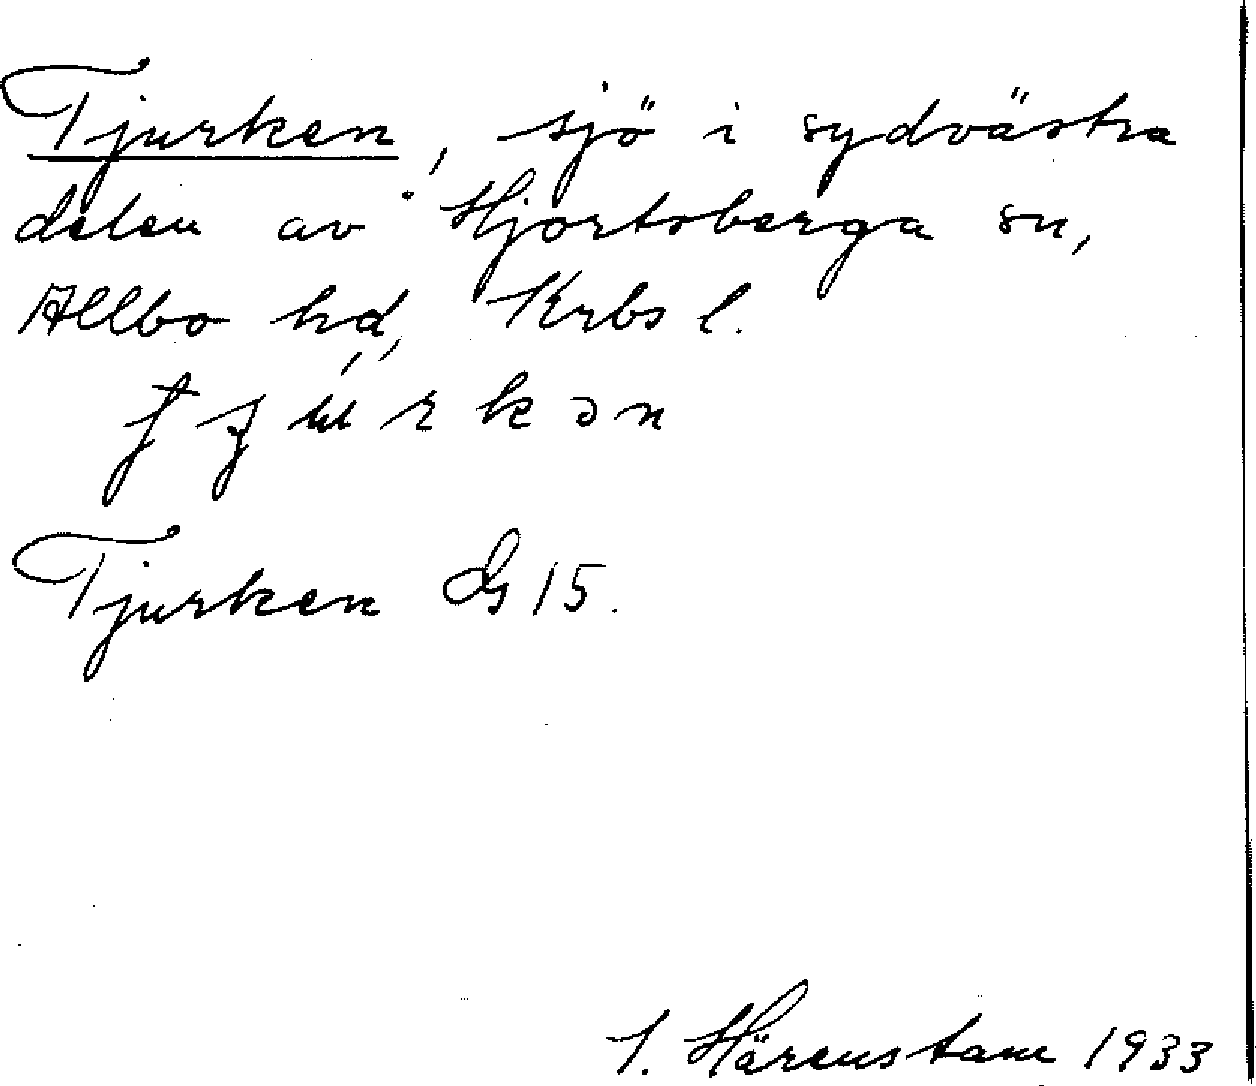 Tjurken, sjö i sydvästra
delen av Hjortsberga sn,
Allbo hd, Krbs l.
Tjurken G 15.
Härenstam 1933